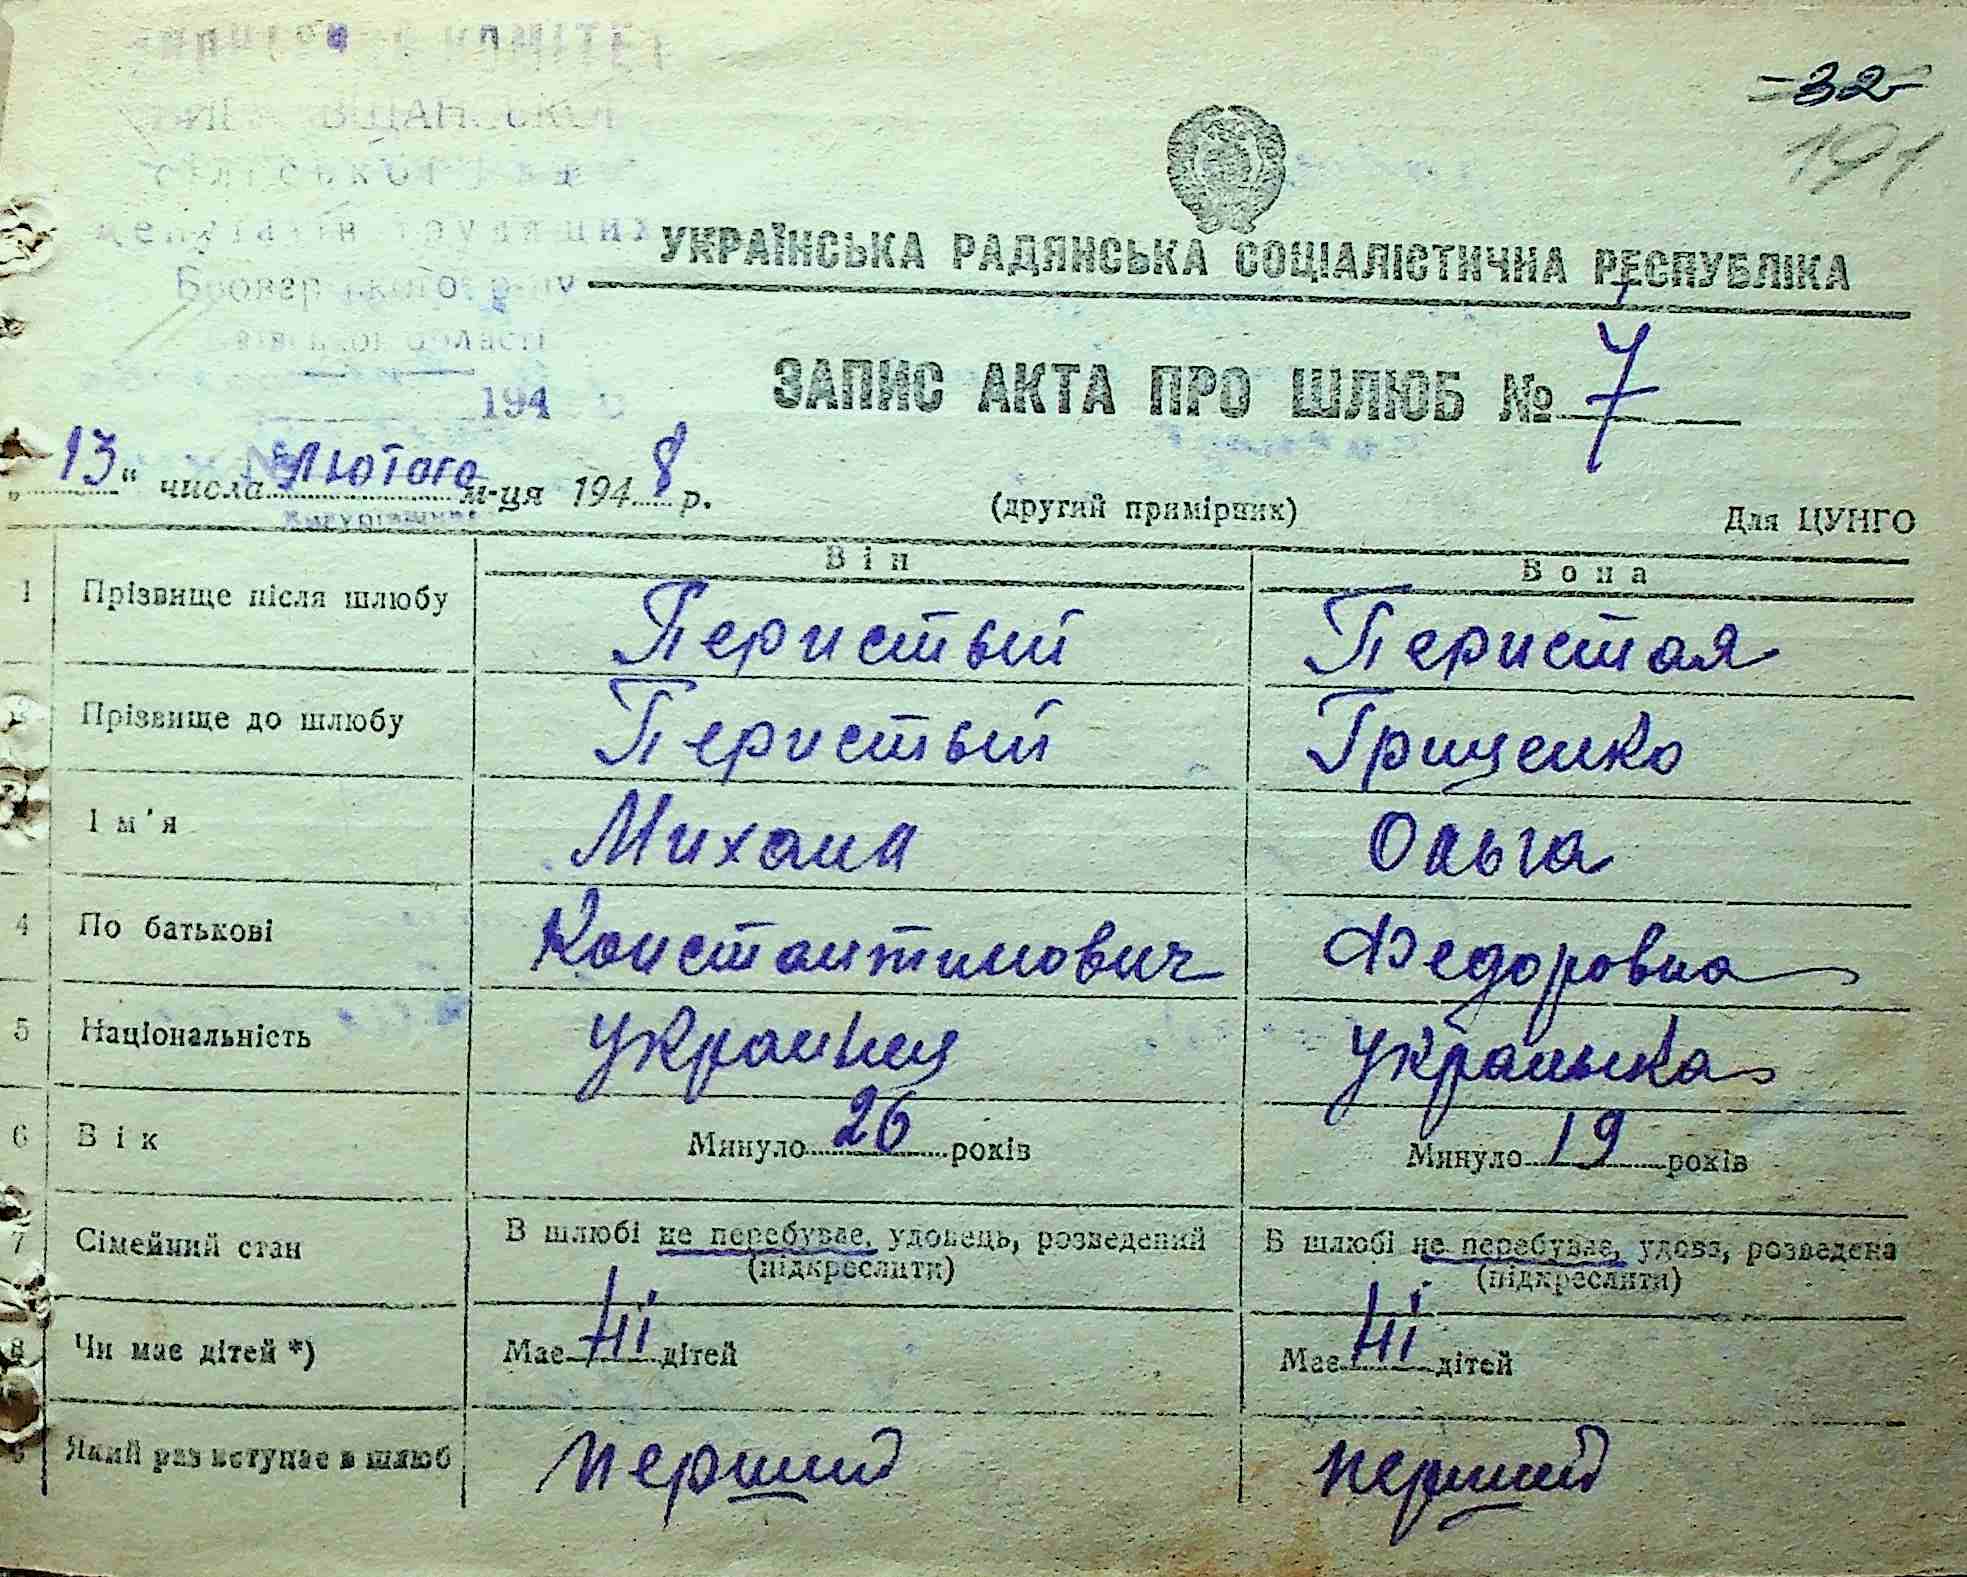 -32-
191
депутатів трудящих
Броварського р-ну
Київської області
194
УКРАЇНСЬКА РАДЯНСЬКА СОЦІАЛІСТИЧНА РЕСПУБЛІКА
ЗАПИС АКТА ПРО ШЛЮБ № 7
„13" числа Лютого м-ця 1948 р.
(другий примірник)
Для ЦУНГО
Він Вона
1 Прізвище після шлюбу Перистый Перистая
2 Прізвище до шлюбу Перистый Грищенко
Ім'я Михаил Ольга
4 По батькові Константинович Федоровна
5 Національність Украинец Украинка
6 Вік Минуло 26 років Минуло 19 років
7 Сімейний стан В шлюбі не перебуває, удовець, розведений В шлюбі не перебуває, удова, розведена
(підкреслити) (підкреслити)
8 Чи має дітей *) Має Ні дітей Має Ні дітей
9 Який раз вступає в шлюб перший перший